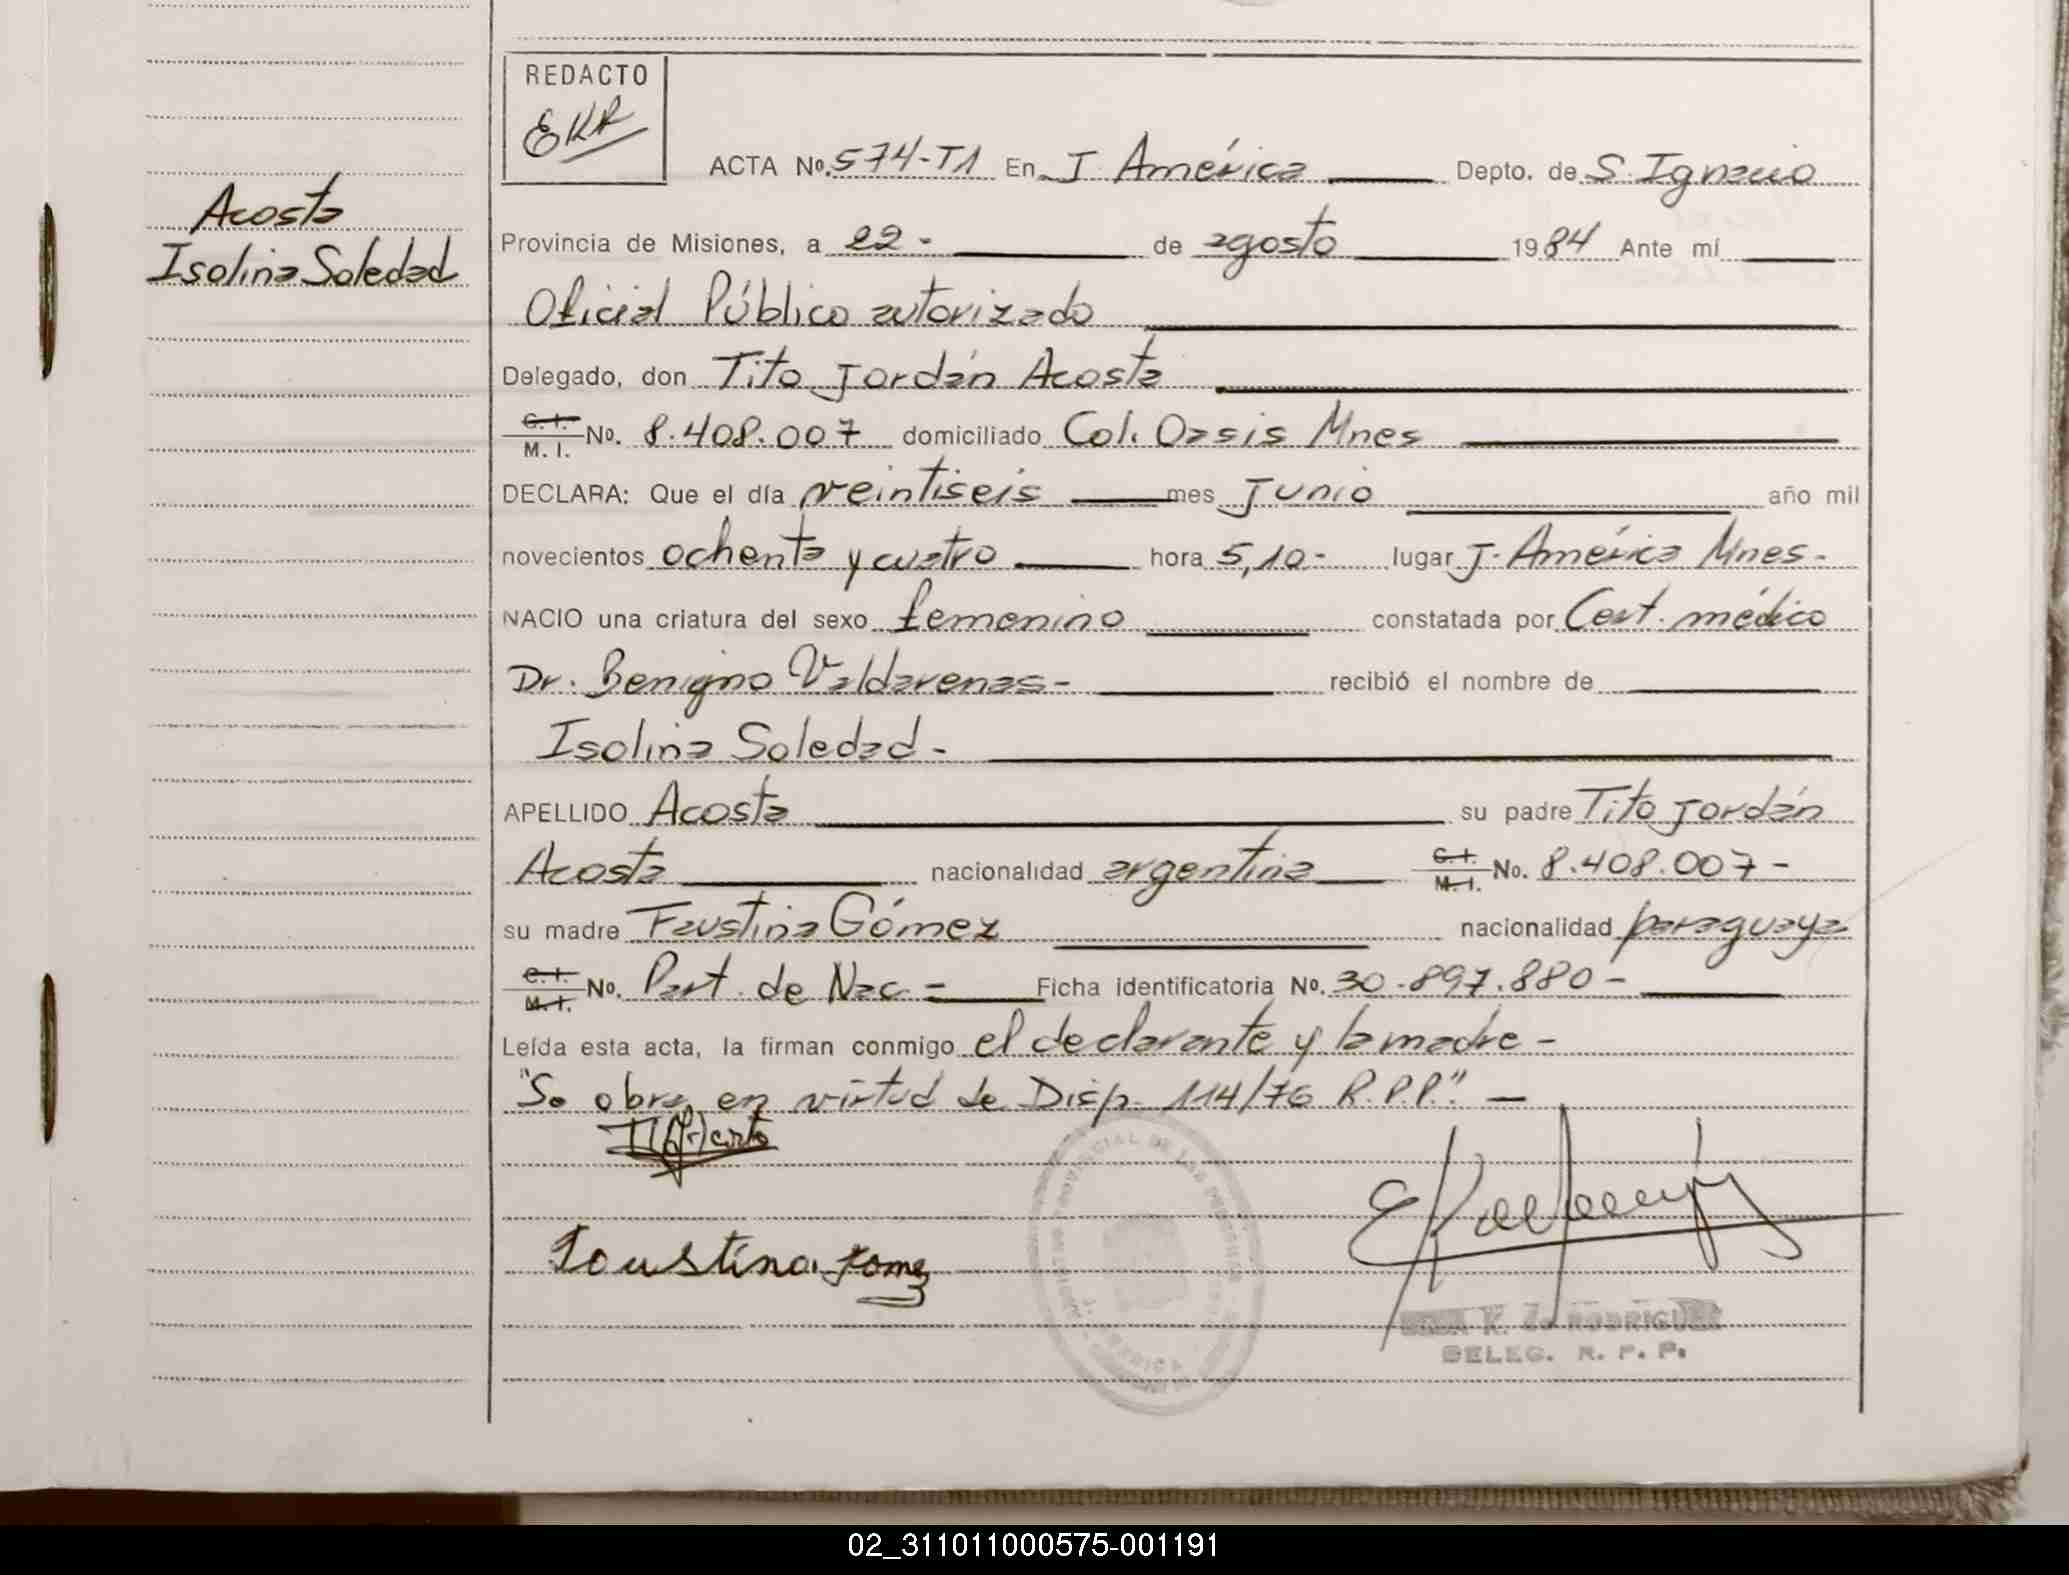 REDACTO
EKR
ACTA No. 574-T1 En J. América Depto. de S. Ignacio
Acosta
Isolina Soledad
Provincia de Misiones, a 22- de agosto 1984 Ante mí
Oficial Público autorizado
Delegado, don Tito Jordán Acosta
C. I. M. I. No. 8.408.007 domiciliado Col. Oasis Mnes
DECLARA: Que el día veintiseis mes junio año mil
novecientos ochenta y cuatro hora 5,10- lugar J. América Mnes-
NACIO una criatura del sexo femenino constatada por Cert. médico
Dr. Benigno Valdarenas- recibió el nombre de
Isolina Soledad-
APELLIDO Acosta su padre Tito Jordán
Acosta nacionalidad argentina C. I. M. I. No. 8.408.007-
su madre Faustina Gómez nacionalidad paraguaya
C. I. M. I. No. Part. de Nac- Ficha identificatoria No. 30.897.880-
Leída esta acta, la firman conmigo el declarante y la madre-
"Se obra en virtud de Disp. 114/76 R.P.P." -
Faustina Gomez
K. de RODRIGUEZ
DELEG. R. P. P.
02_311011000575-001191